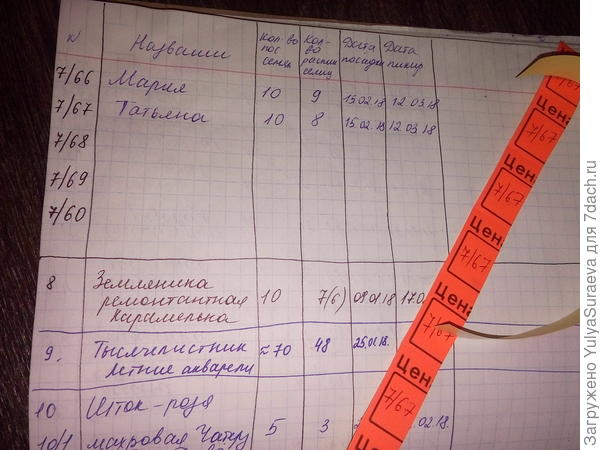 N Названи Кол-во пос семян Кол-во распик семян Дата посадки Дата пикир
7/66 Мария 10 9 15.02.18 12.03.18
7/67 Татьяна 10 8 15.02.18 12.03.18
7/68
7/69
7/60
8 Земляника ремонтантная Карамелька 10 7(6) 09.01.18 170
9. Тысячелистник Летние акварели ≈70 48 25.01.18.
10 Шток-роза
10/1 махровая Чатер 5 3 02.18.
7/67
Цен
7/67
Цен
7/67
Цен
7/67
Цен
7/67
Цен
7/67
Загружено YulyaSuraeva для 7dach.ru